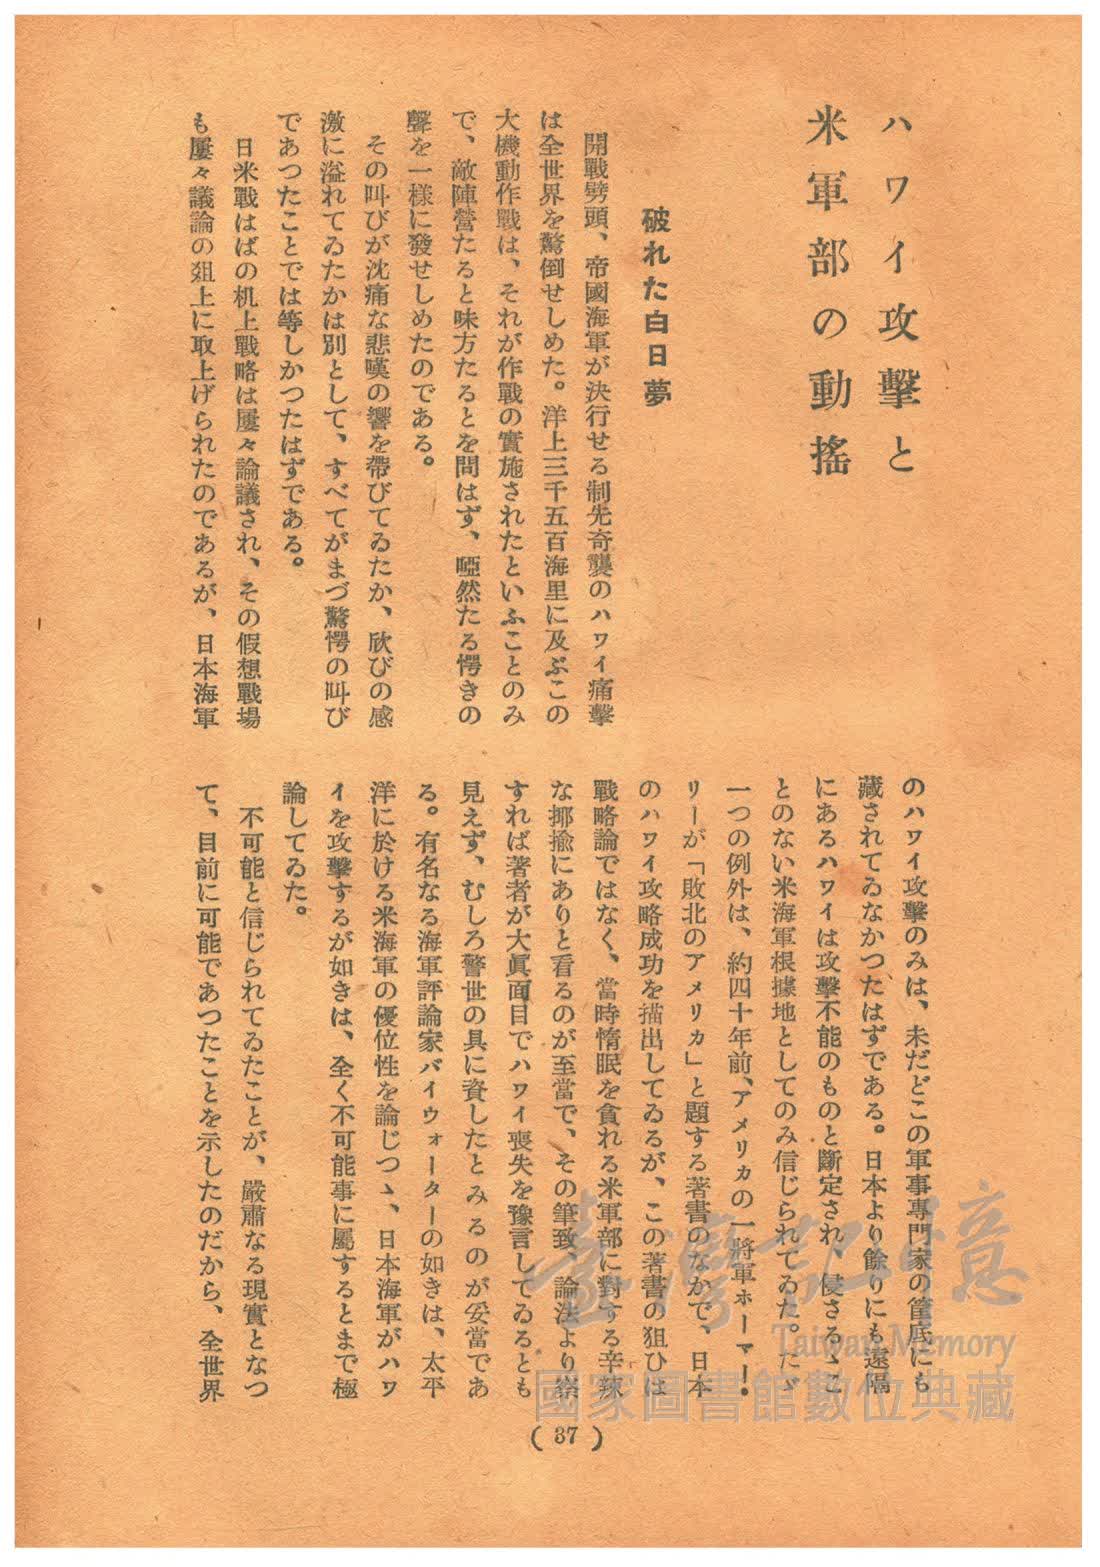 ハワイ攻擊と
米軍部の動搖
破れた白日夢
開戰劈頭、帝國海軍が決行せる制先奇襲のハワイ痛擊
は全世界を驚倒せしめた。洋上三千五百海里に及ぶこの
大機動作戰は、それが作戰の實施されたといふことのみ
で、敵陣營たると味方たるとを問はず、啞然たる愕きの
聲を一樣に發せしめたのである。
その叫びが沈痛な悲嘆の響を帶びてゐたか、欣びの感
激に溢れてゐたかは別として、すべてがまづ驚愕の叫び
であつたことでは等しかつたはずである。
日米戰はばの机上戰略は屢々論議され、その假想戰場
も屢々議論の俎上に取上げられたのであるが、日本海軍
のハワイ攻擊のみは、未だどこの軍事專門家の筐底にも
藏されてゐなかつたはずである。日本より餘りにも遠隔
にあるハワイは攻擊不能のものと斷定され、侵さるゝこ
とのない米海軍根據地としてのみ信じられてゐた。たゞ
一つの例外は、約四十年前、アメリカの一將軍ホーマー!
リーが「敗北のアメリカ」と題する著書のなかで、日本
のハワイ攻略成功を描出してゐるが、この著書の狙ひは
戰略論ではなく、當時惰眠を貪れる米軍部に對する辛辣
な揶揄にありと看るのが至當で、その筆致、論法より察
すれば著者が大眞面目でハワイ喪失を豫言してゐるとも
見えず、むしろ警世の具に資したとみるのが妥當であ
る。有名なる海軍評論家バイウォーターの如きは、太平
洋に於ける米海軍の優位性を論じつゝ、日本海軍がハワ
イを攻擊するが如きは、全く不可能事に屬するとまで極
論してゐた。
不可能と信じられてゐたことが、嚴肅なる現實となつ
て、目前に可能であつたことを示したのだから、全世界
(37)
臺灣記憶
Taiwan Memory
國家圖書館數位典藏